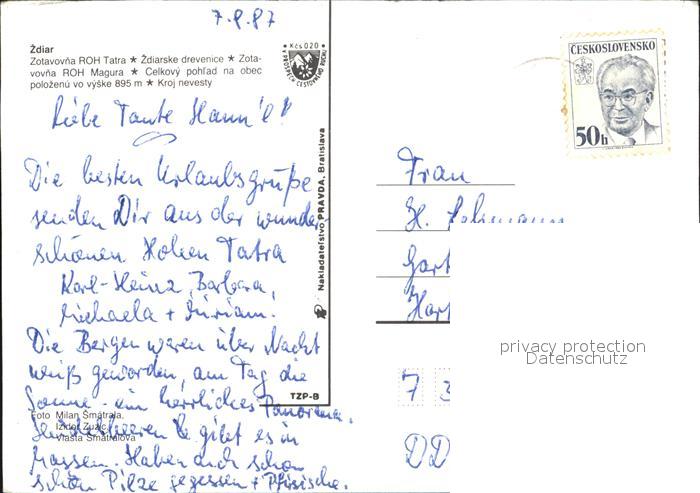 7.8.87
Ždiar
Zotavovňa ROH Tatra ★ Ždiarske drevenice ★ Zota-
vovňa ROH Magura ★ Celkový pohľad na obec
položenú vo výške 895 m ★ Kroj nevesty
Kčs 020
V PROSPECH CESTOVNÉHO RUCHU
ČESKOSLOVENSKO
50h
Liebe Tante Hann'l!
Die besten Urlaubsgrüße
senden Dir aus der wunder-
schönen Hohen Tatra
Karl-Heinz, Barbara,
Michaela + Miriam.
Die Bergen waren über Nacht
weiß geworden, am Tag die
Sonne - ein herrliches Panorama.
Himbeeren gibt es in
Massen. Haben auch schon
schön Pilze gegessen + Pfirsiche.
Nakladateľstvo PRAVDA, Bratislava
TZP-B
Foto Milan Šmatrala,
Izidor Zuzic,
Vlasta Šmatralová
Frau
H.
Gart
Hart
7 3
DD
privacy protection
Datenschutz